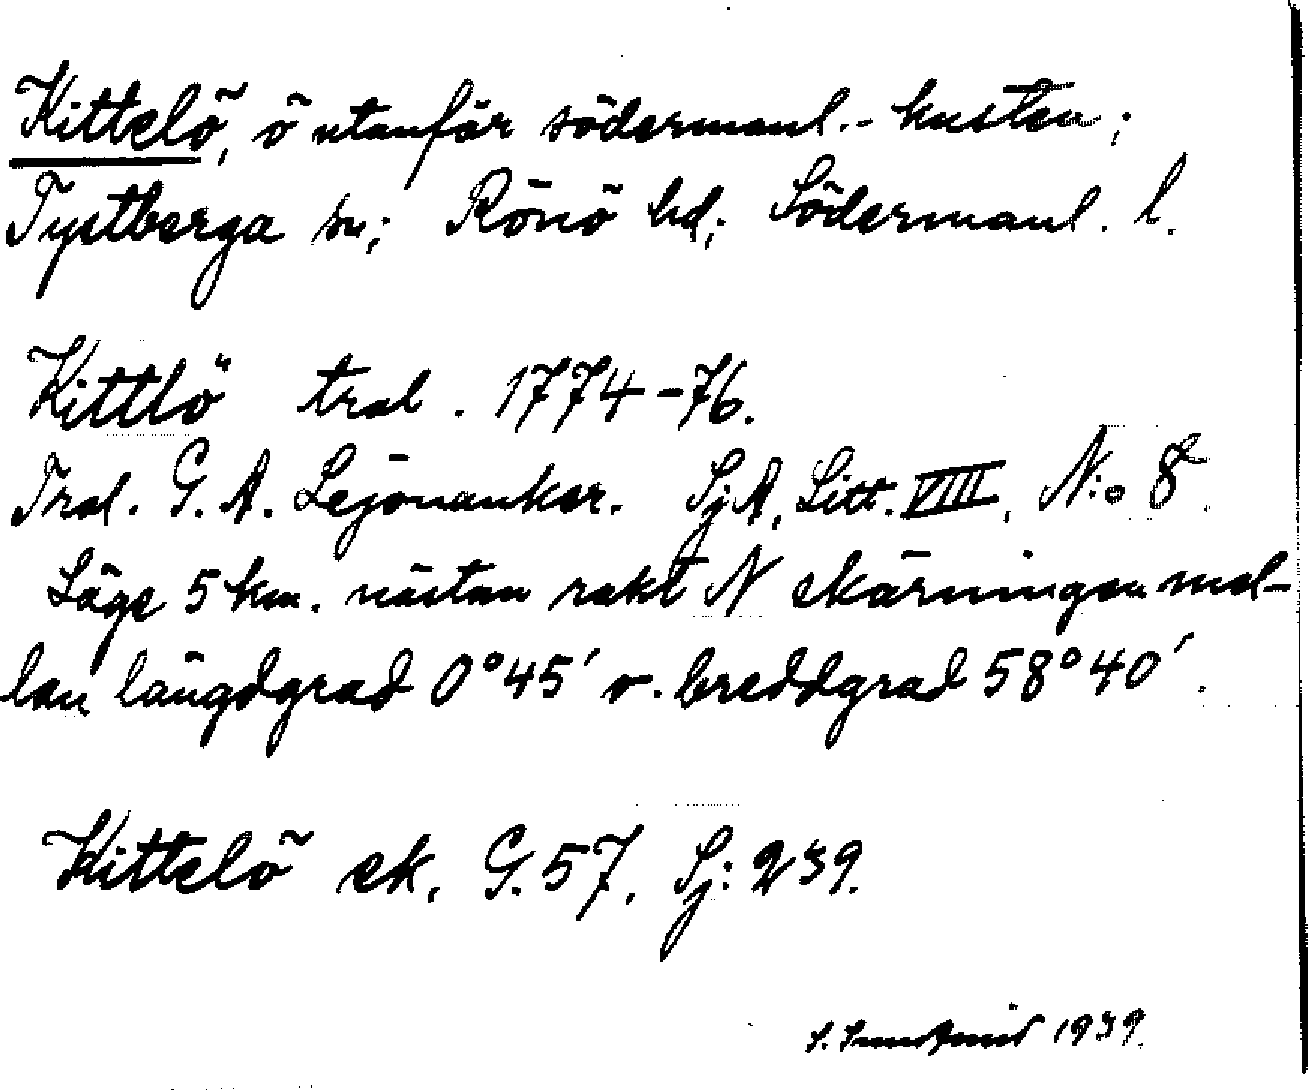 Kittelö, ö utanför södermanl.-kusten;
Tystberga sn; Rönö hd; Södermanl. l.
Kittlö tral. 1774-76.
Tral. G. A. Lejonanker. SjA, Litt. VIII, N:o 8.
Läge 5 km. nästan rakt N skärningen mel-
lan längdgrad 0°45′ o. breddgrad 58°40′.
Kittelö ek. G. 57. Sj: 239.
S. 1939.